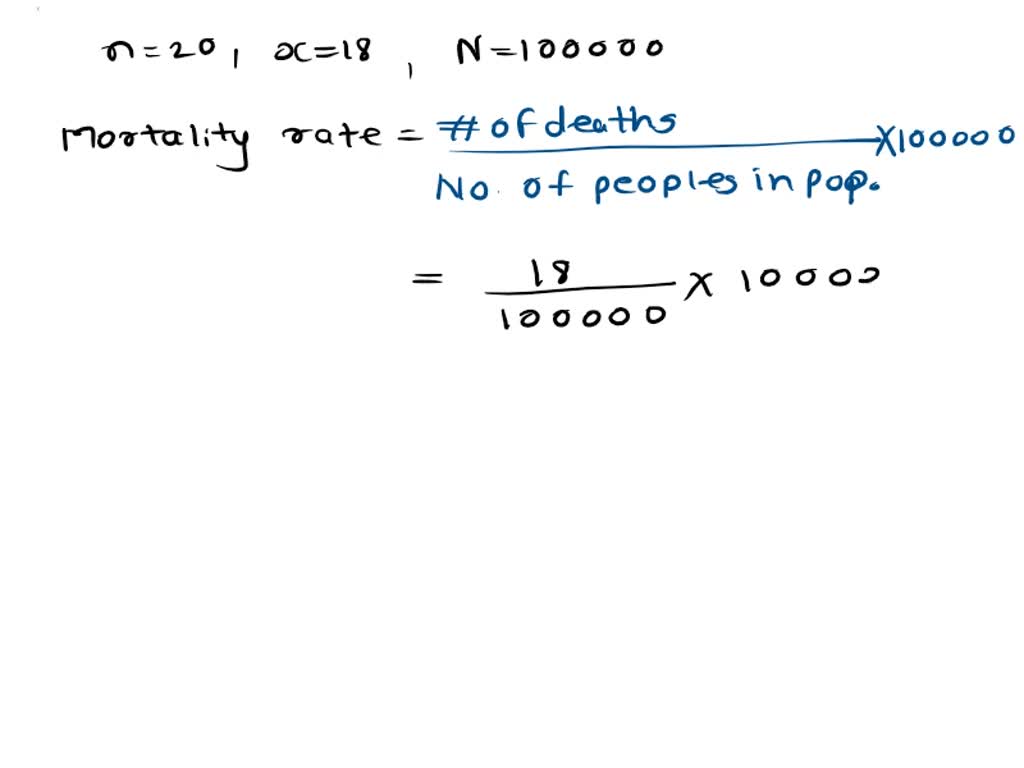 n=20, x=18, N=100000
Mortality rate = # of deaths / No. of peoples in pop. X100000
= 18 / 100000 X 10000